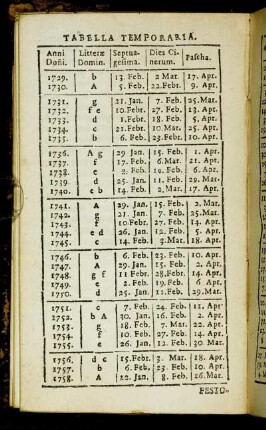 TABELLA TEMPORARIA.
Anni Dom̃i. Litteræ Domin. Septuagesima. Dies Cinerum. Pascha.
1729. b 13. Feb. 2 Mar. 17. Apr.
1730. A 5. Feb. 22. Febr. 9. Apr.
1731. g 21. Jan. 7. Feb. 25. Mar.
1732. f e 10. Febr. 27. Feb. 13. Apr.
1733. d 1. Febr. 18. Feb. 5. Apr.
1734. c 21. Febr. 10. Mar. 25. Apr.
1735. b 6. Feb. 23. Febr. 10. Apr.
1736. A g 29 Jan. 15. Feb. 1. Apr.
1737. f 17. Feb. 6. Mar. 21. Apr.
1738. e 2. Feb. 19. Feb. 6. Apr.
1739. d 25. Jan. 11. Feb. 29. Mar.
1740. c b 14. Feb. 2. Mar. 17. Apr.
1741. A 29. Jan. 15. Feb. 2. Apr.
1742. g 21. Jan. 7. Feb. 25. Mar.
1743. f 10. Febr. 27. Feb. 14. Apr.
1744. e d 26. Jan. 12. Feb. 5. Apr.
1745. c 14. Feb. 3. Mar. 18. Apr.
1746. b 6. Feb. 23. Feb. 10. Apr.
1747. A 29. Jan. 15. Feb. 2. Apr.
1748. g f 11 Febr. 28. Feb. 14. Apr.
1749. e 2. Feb. 19. Feb. 6. Apr.
1750. d 25. Jan. 11. Feb. 29. Mar.
1751. c 7. Feb. 24. Feb. 11. Apr
1752. b A 30. Jan. 16. Feb. 2. Apr.
1753. g 18. Feb. 7. Mar. 22. Apr.
1754. f 10. Feb. 27. Feb. 14. Apr.
1755. e 26. Jan. 12. Feb. 30 Mar.
1756. d c 15. Febr. 3. Mar. 18. Apr.
1757. b 6. Feb. 23. Feb. 10. Apr.
1758. A 22. Jan. 8. Feb. 26. Mar.
FESTO-